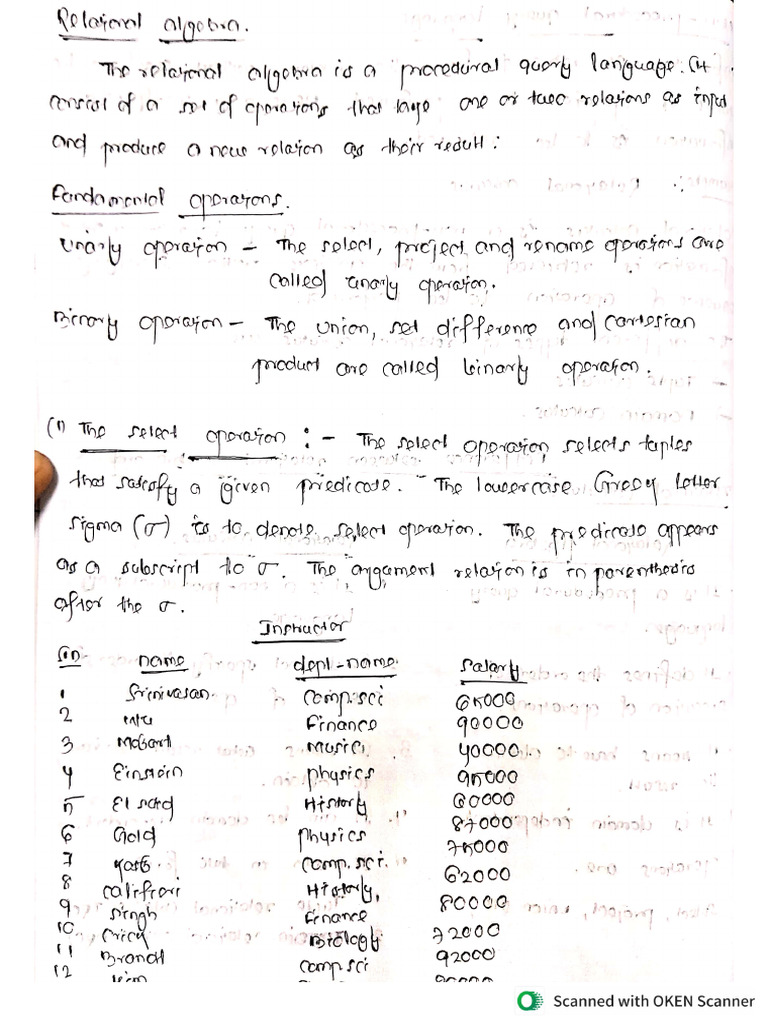 Relational algebra.
The relational algebra is a procedural query language. It
consist of a set of operations that take one or two relations as input
and produce a new relation as their result:
Fundamental operations.
Unary operation – The select, project, and rename operations are
called unary operation.
Binary operation – The union, set difference and cartesian
product are called binary operation.
(1) The select operation :- The select operation selects tuples
that satisfy a given predicate. The lowercase Greek letter
sigma (σ) is to denote select operation. The predicate appears
as a subscript to σ. The argument relation is in parenthesis
after the σ.
Instructor
name dept-name salary
1 Srinivasan comp.sci 65000
2 Finance 90000
3 Mozart Music 40000
4 Einstein physics 95000
5 El said History 60000
6 Gold physics 87000
7 Katz comp.sci. 75000
8 califieri History, 62000
9 singh Finance 80000
10. crick Biology 72000
11 Brandt comp sci 92000
12 kim
Scanned with OKEN Scanner